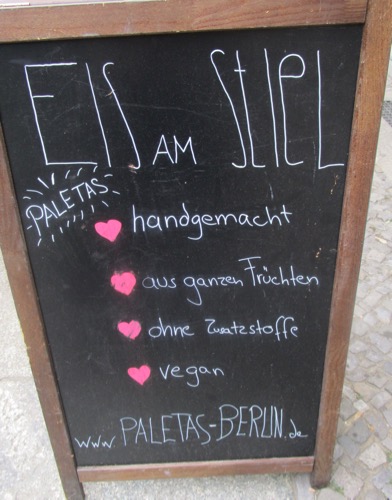 EIS AM STIEL
PALETAS
handgemacht
aus ganzen Früchten
ohne Zusatzstoffe
vegan
www.PALETAS-BERLIN.de